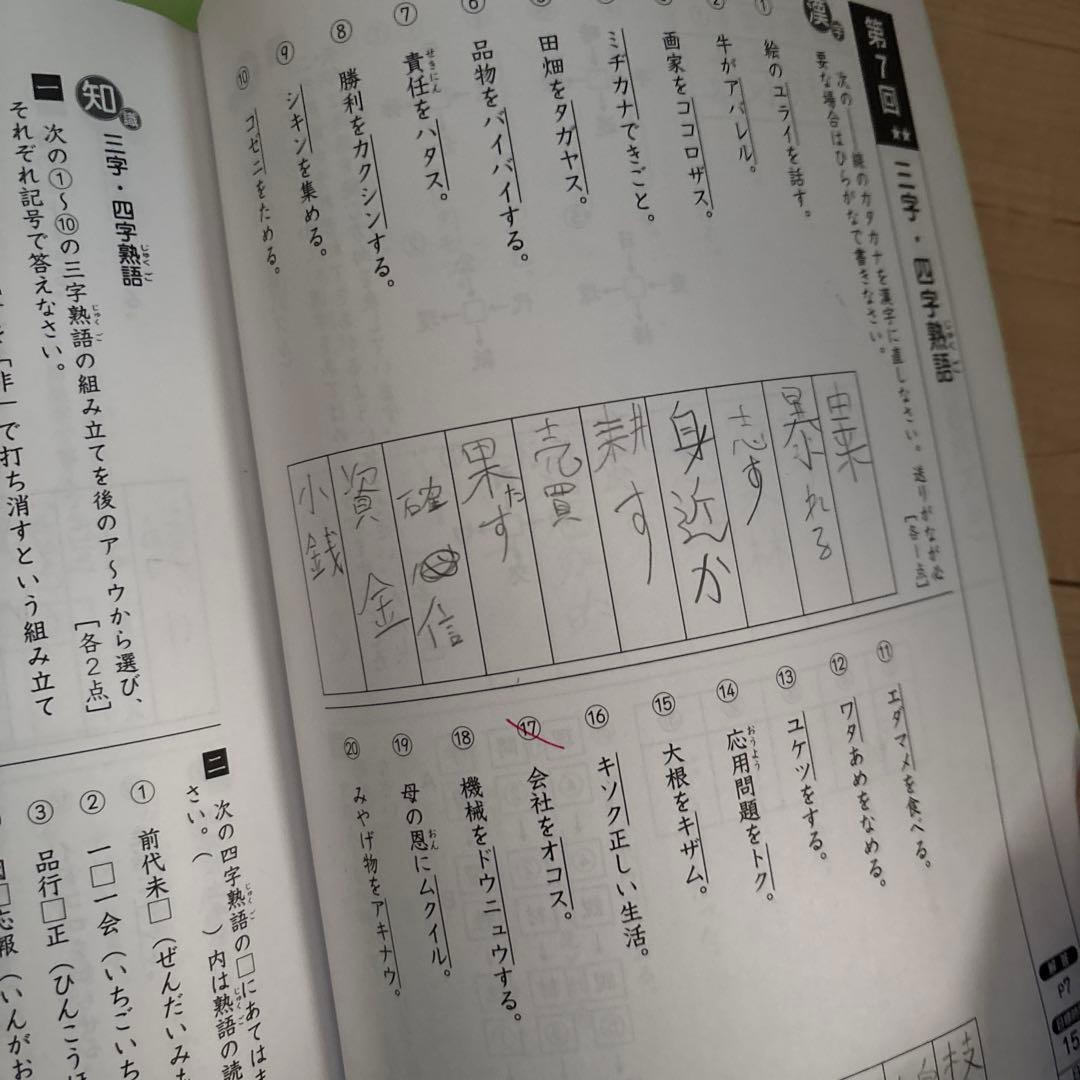 第7回 ★★ 三字・四字熟語
じゅくご
漢字
次の――線のカタカナを漢字に直しなさい。送りがなが必
要な場合はひらがなで書きなさい。
[各1点]
① 絵のユライを話す。
② 牛がアバレル。
画家をココロザス。
ミヂカナできごと。
田畑をタガヤス。
品物をバイバイする。
⑦ 責任をハタス。
せきにん
⑧ 勝利をカクシンする。
⑨ シキンを集める。
⑩ コゼニをためる。
由来
暴れる
志す
身近か
耕す
売買
果たす
確信
資金
小銭
⑪ エダマメを食べる。
⑫ ワタあめをなめる。
⑬ ユケツをする。
⑭ 応用問題をトク。
おうよう
⑮ 大根をキザム。
⑯ キソク正しい生活。
⑰ 会社をオコス。
⑱ 機械をドウニュウする。
⑲ 母の恩にムクイル。
おん
⑳ みやげ物をアキナウ。
枝
解答
P7
15
知識
三字・四字熟語
じゅくご
一 次の①〜⑩の三字熟語の組み立てを後のア〜ウから選び、
じゅくご
それぞれ記号で答えなさい。
[各2点]
「非」で打ち消すという組み立て
二 次の四字熟語の□にあては
じゅくご
さい。( )内は熟語の読
じゅくご
① 前代未□(ぜんだいみ
② 一□一会(いちごいち
③ 品行□正(ひんこうほ
□応報(いんがお